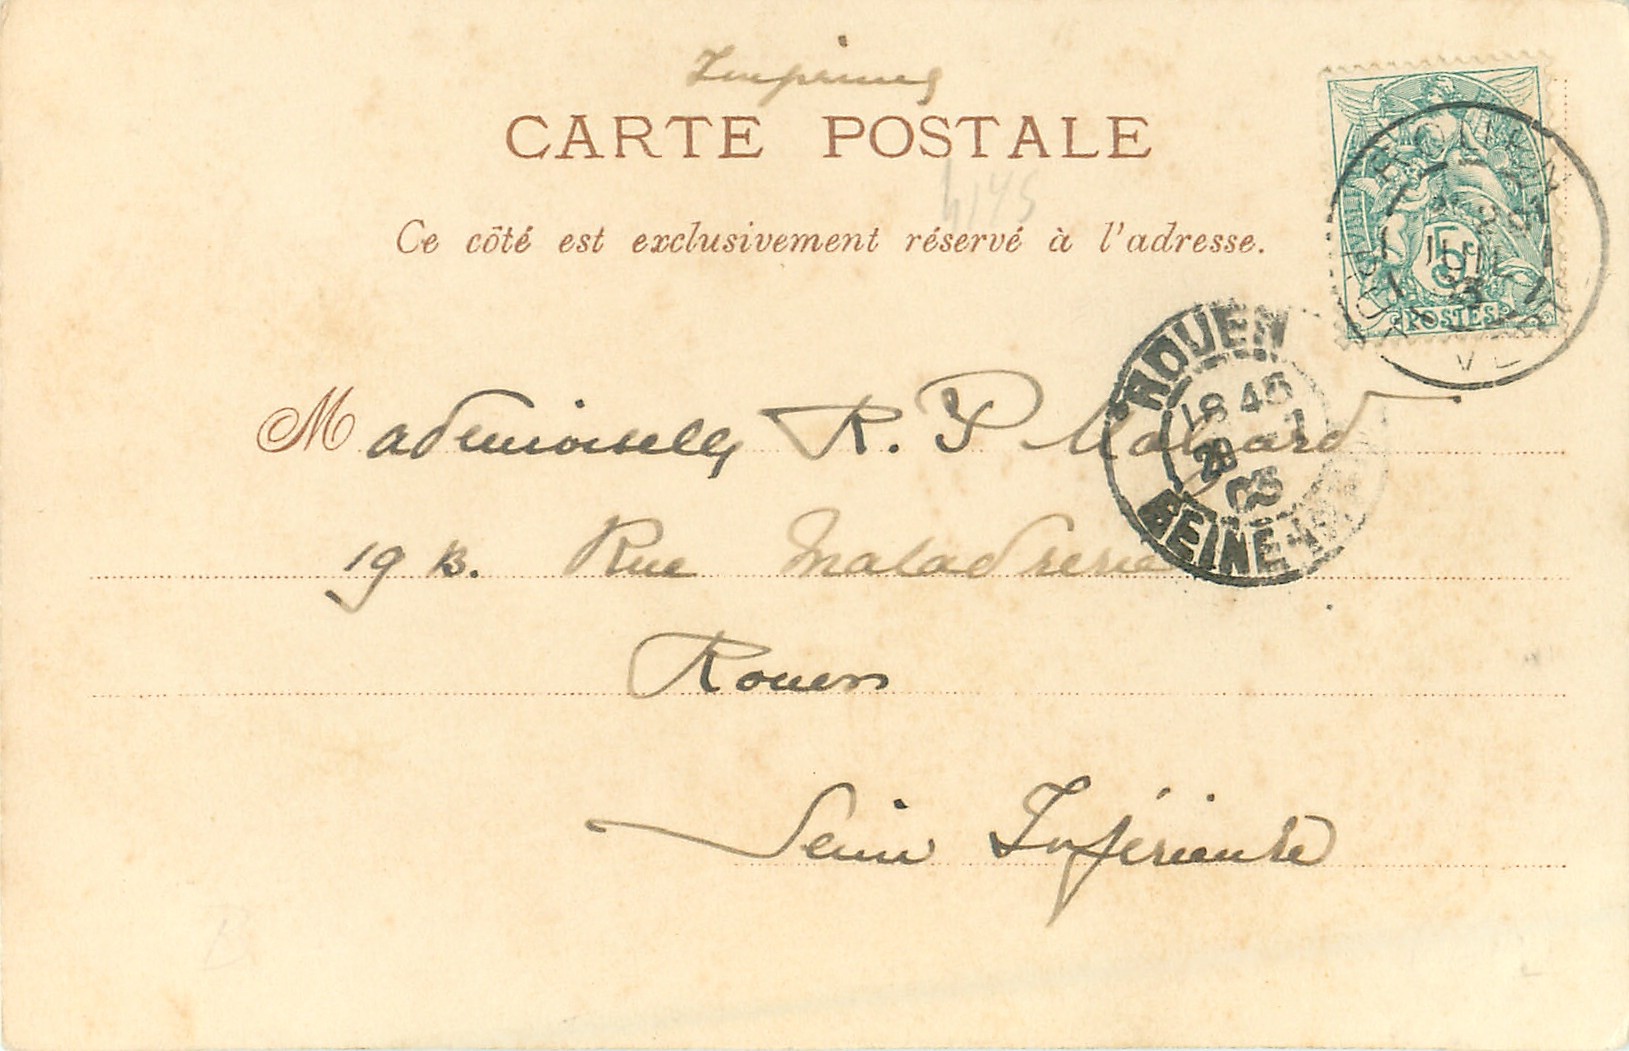 Imprimé
CARTE POSTALE
4145
Ce côté est exclusivement réservé à l'adresse.
5
POSTES
28
JUIL
03
ROUEN
18 45
29 7
03
SEINE-INF
Mademoiselle R. P
19 B. Rue Maladrerie
Rouen
Seine Inférieure